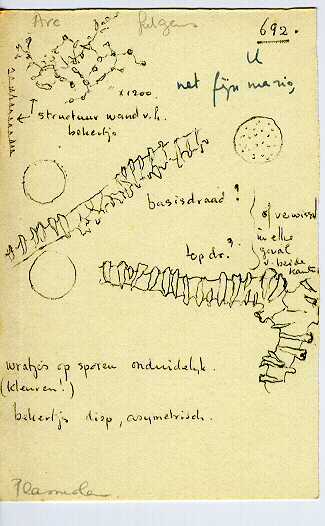 Arc fulgens
692.
net fijn mazig
x1200
structuur wand v.h.
bekertje
basisdraad?
top dr.?
of verwisseld
in elk
geval
v. beide
kanten
wratjes op sporen onduidelijk.
(kleuren!)
bekertje disp, asymetrisch.